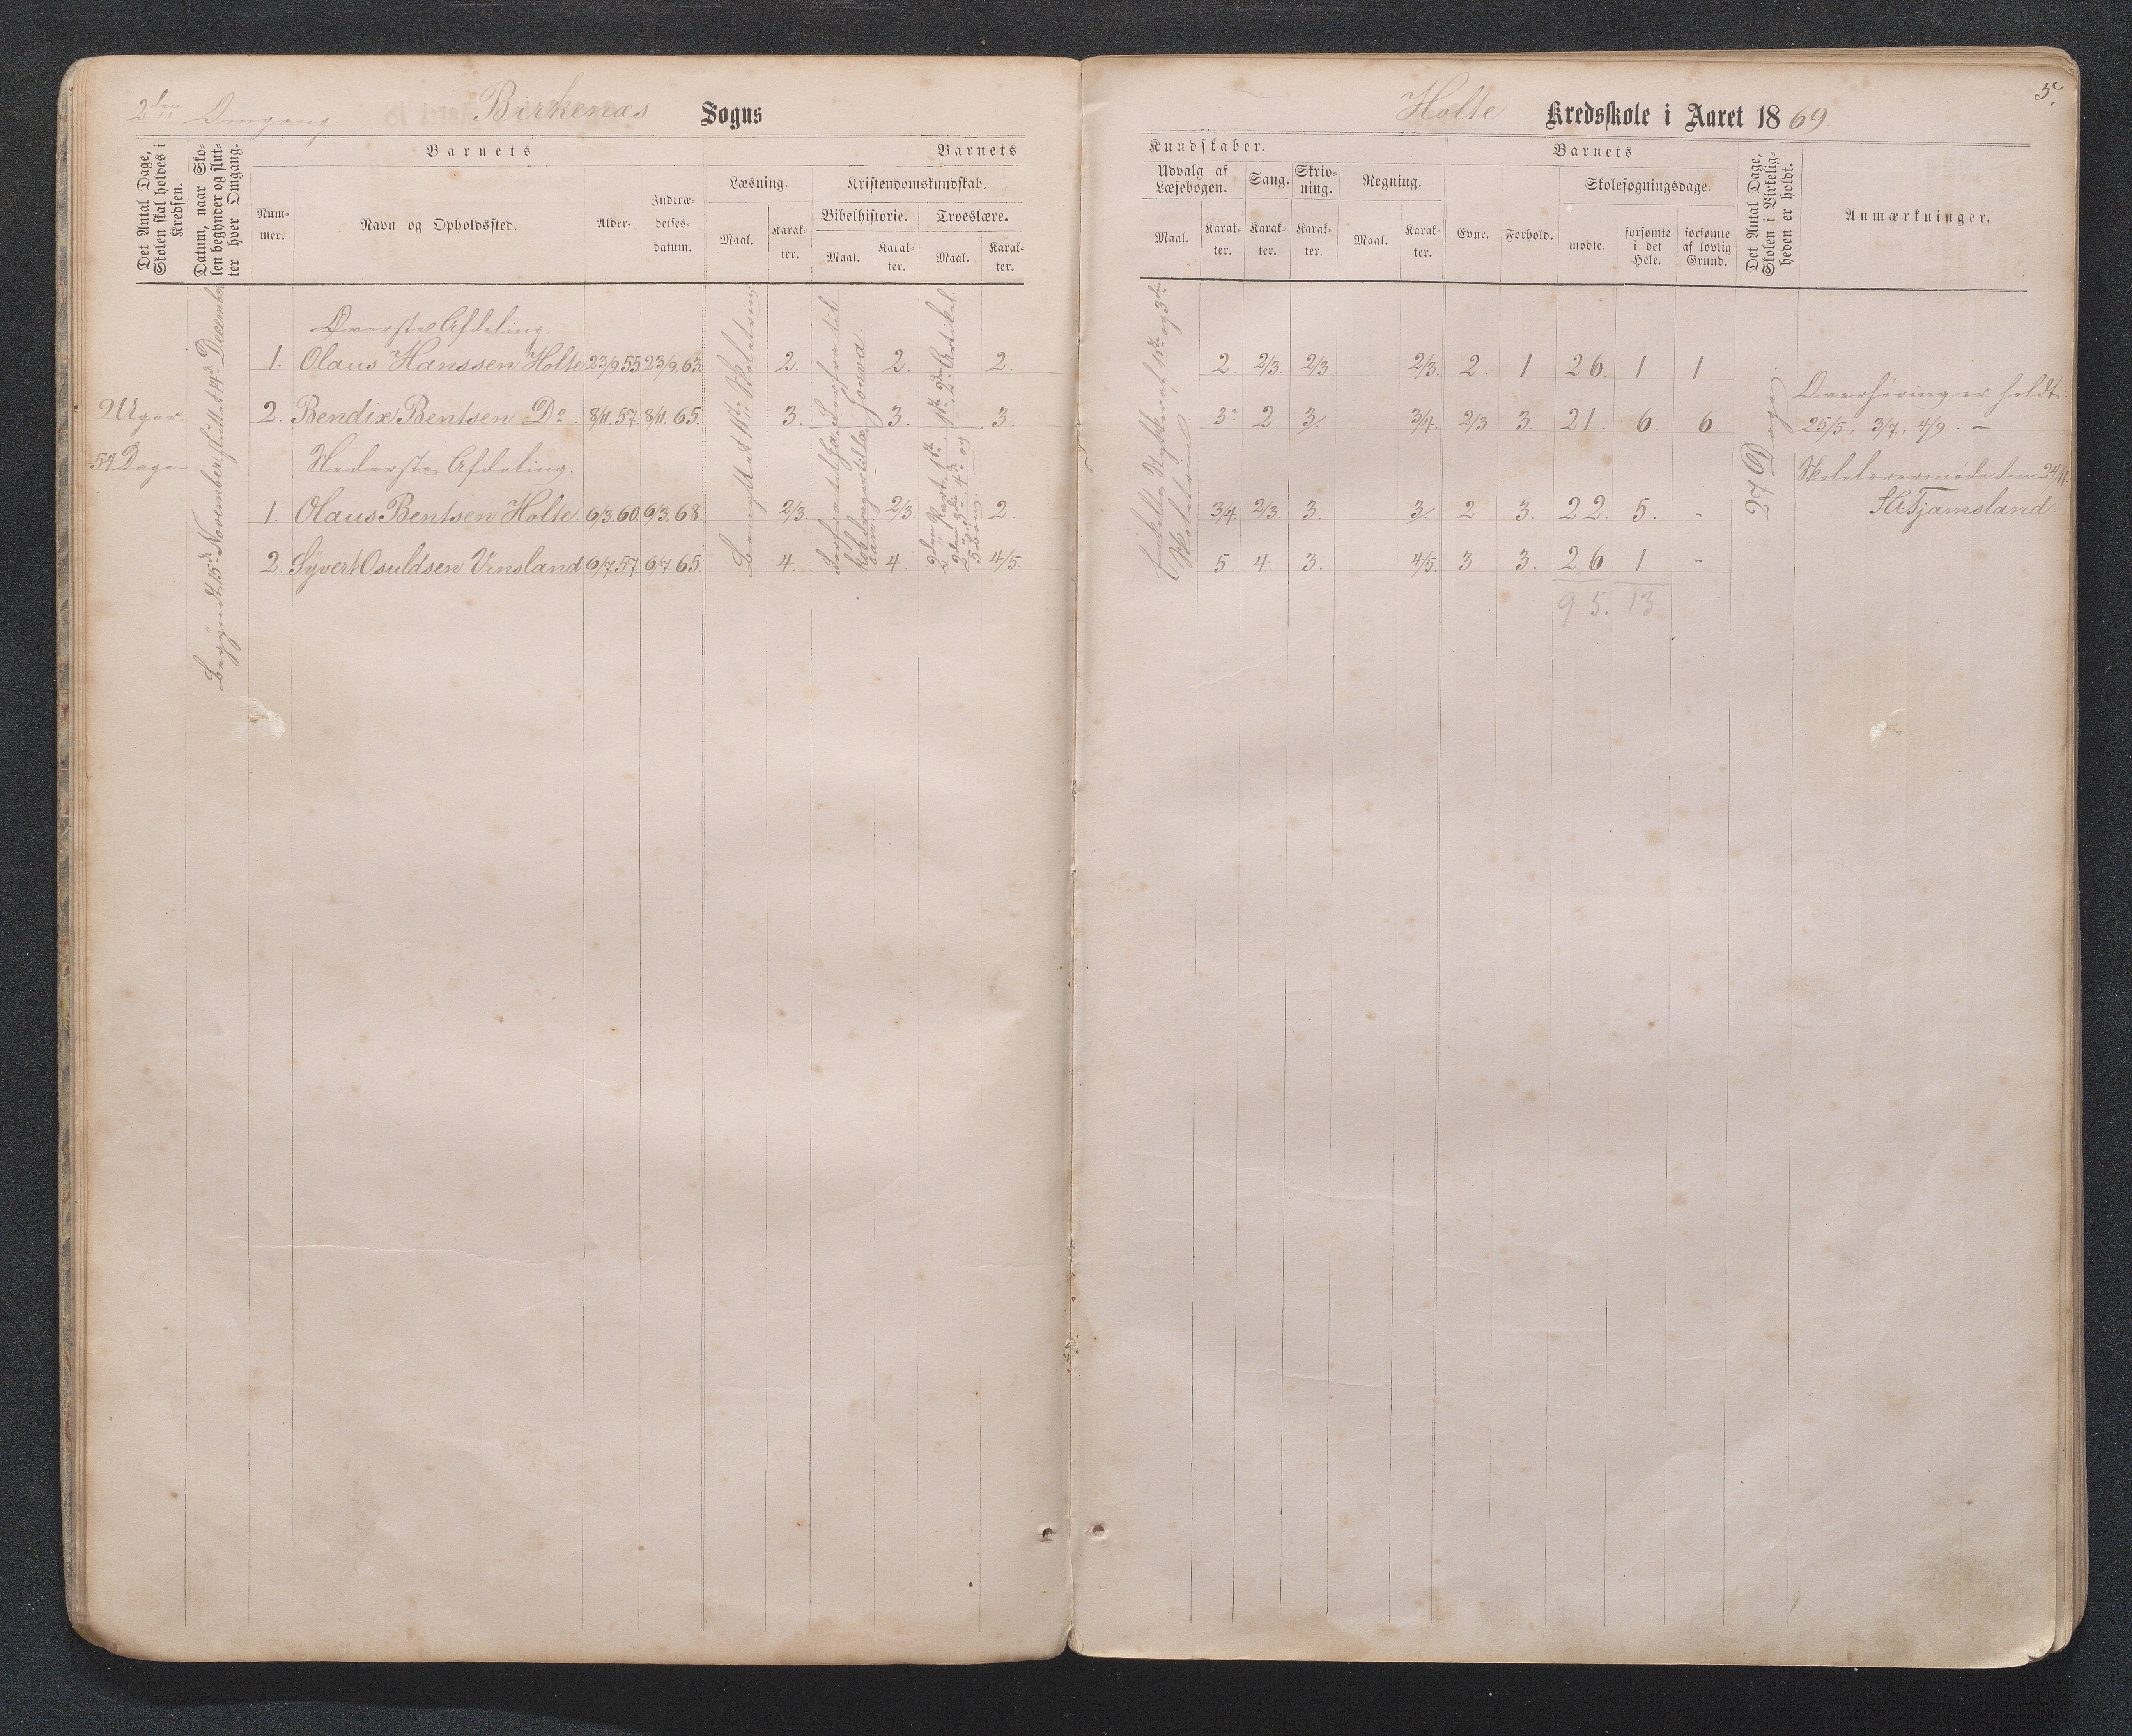 2den Omgang Birkenæs Sogns
Holte Kredsskole i Aaret 1869.
5.
Det Antal Dage, Skolen skal holdes i Kredsen.
Datum, naar Skolen begynder og slutter hver Omgang.
Barnets
Nummer.
Navn og Opholdssted.
Alder.
Indtrædelsesdatum.
Barnets
Læsning.
Maal.
Karakter.
Kristendomskundskab.
Bibelhistorie.
Maal.
Karakter.
Troeslære.
Maal.
Karakter.
Kundskaber.
Udvalg af Læsebogen.
Maal.
Karakter.
Sang.
Karakter.
Skrivning.
Karakter.
Regning.
Maal.
Karakter.
Barnets
Evne.
Forhold.
Skolesøgningsdage.
mødte.
forsømte i det Hele.
forsømte af lovlig Grund.
Det Antal Dage, Skolen i Virkeligheden er holdt.
Anmærkninger.
9 Uger
54 Dage
Begyndt 15de November, sluttet 14de December
Øverste Afdeling.
1. Olaus Hanssen Holte 23/9.55 23/9.63. 2. 2. 2. 2. 2/3. 2/3. 2/3. 2. 1 26. 1. 1
2. Bendix Bentsen Do. 8/11.57. 8/11.65. 3. 3. 3. 3- 2. 3/. 3/4. 2/3 3. 21. 6. 6.
Nederste Afdeling.
1. Olaus Bentsen Holte. 6/3.60. 6/3.68. 2/3. 2/3. 2. 3/4. 2/3. 3. 3/. 2 3. 22. 5. -
2. Syvert Osuldsen Vinsland 6/7.57 6/7.65. 4. 4. 4/5. 5. 4. 3. 4/5. 3 3. 26. 1 -
95. 13
Benyttet 1ste Skoletrin
Josva.
Enkelte Stykker af 1ste og 3die
Skoletrin
27 Dage
Overhøring er holdt
25/5. 3/7. 4/9. -
Skolelærermøde den 24/11.
Tjamsland.